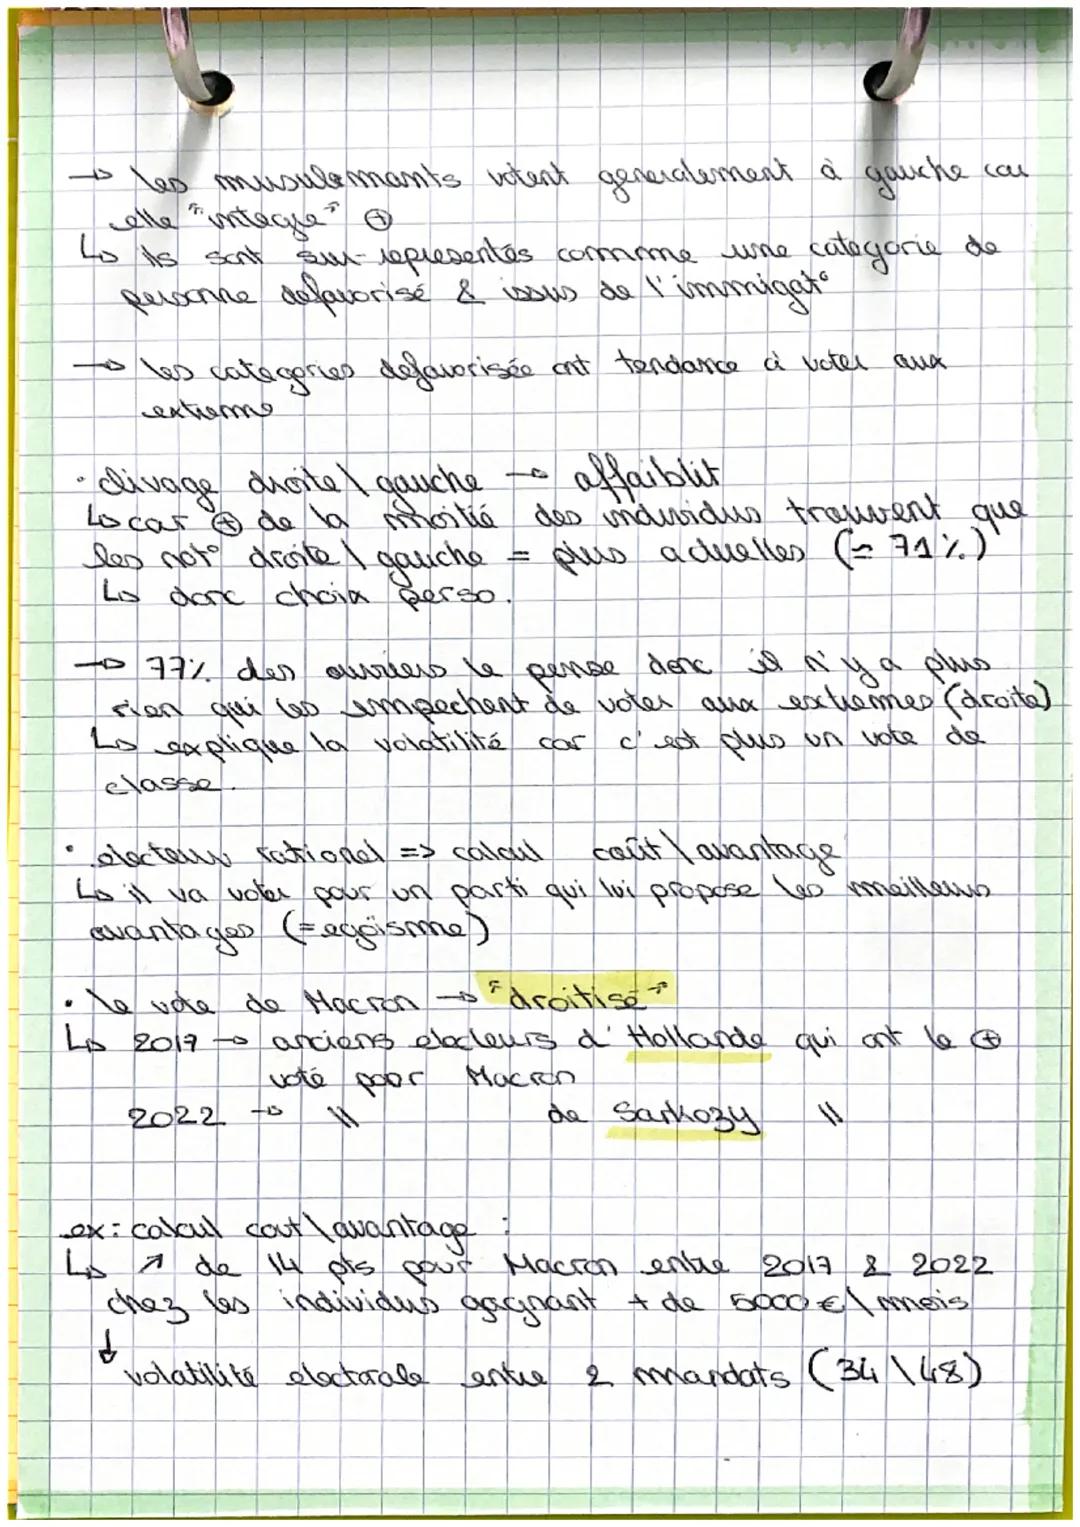 → les musulemants votent generalement à gauche car
elle "integre" ⊕
↳ ils sont sur-representés comme une categorie de
personne defavorisé & issus de l'immigat°
→ les categories defavorisée ont tendance à voter aux
extreme
• clivage droite \ gauche → affaiblit
↳ car ⊕ de la moitié des individus trouvent que
les not° droite \ gauche = plus actuelles (= 71%)
↳ donc choix perso.
→ 77% des ouvriers le pense donc il n'y a plus
rien qui les empechent de voter aux extremes (droite)
↳ explique la volatilité car c'est plus un vote de
classe.
• electeur rationel => calcul coût \ avantage
↳ il va voter pour un parti qui lui propose les meilleurs
avantages (= egoïsme)
• le vote de Macron → "droitisé"
↳ 2017 → anciens electeurs d'Hollande qui ont le ⊕
voté pour Macron
2022 → \\ de Sarkozy \\
ex: calcul cout \ avantage :
↳ ↗ de 14 pts pour Macron entre 2017 & 2022
chez les individus gagnant + de 5000 € \ mois
↓
volatilité electorale entre 2 mandats (34 \ 48)